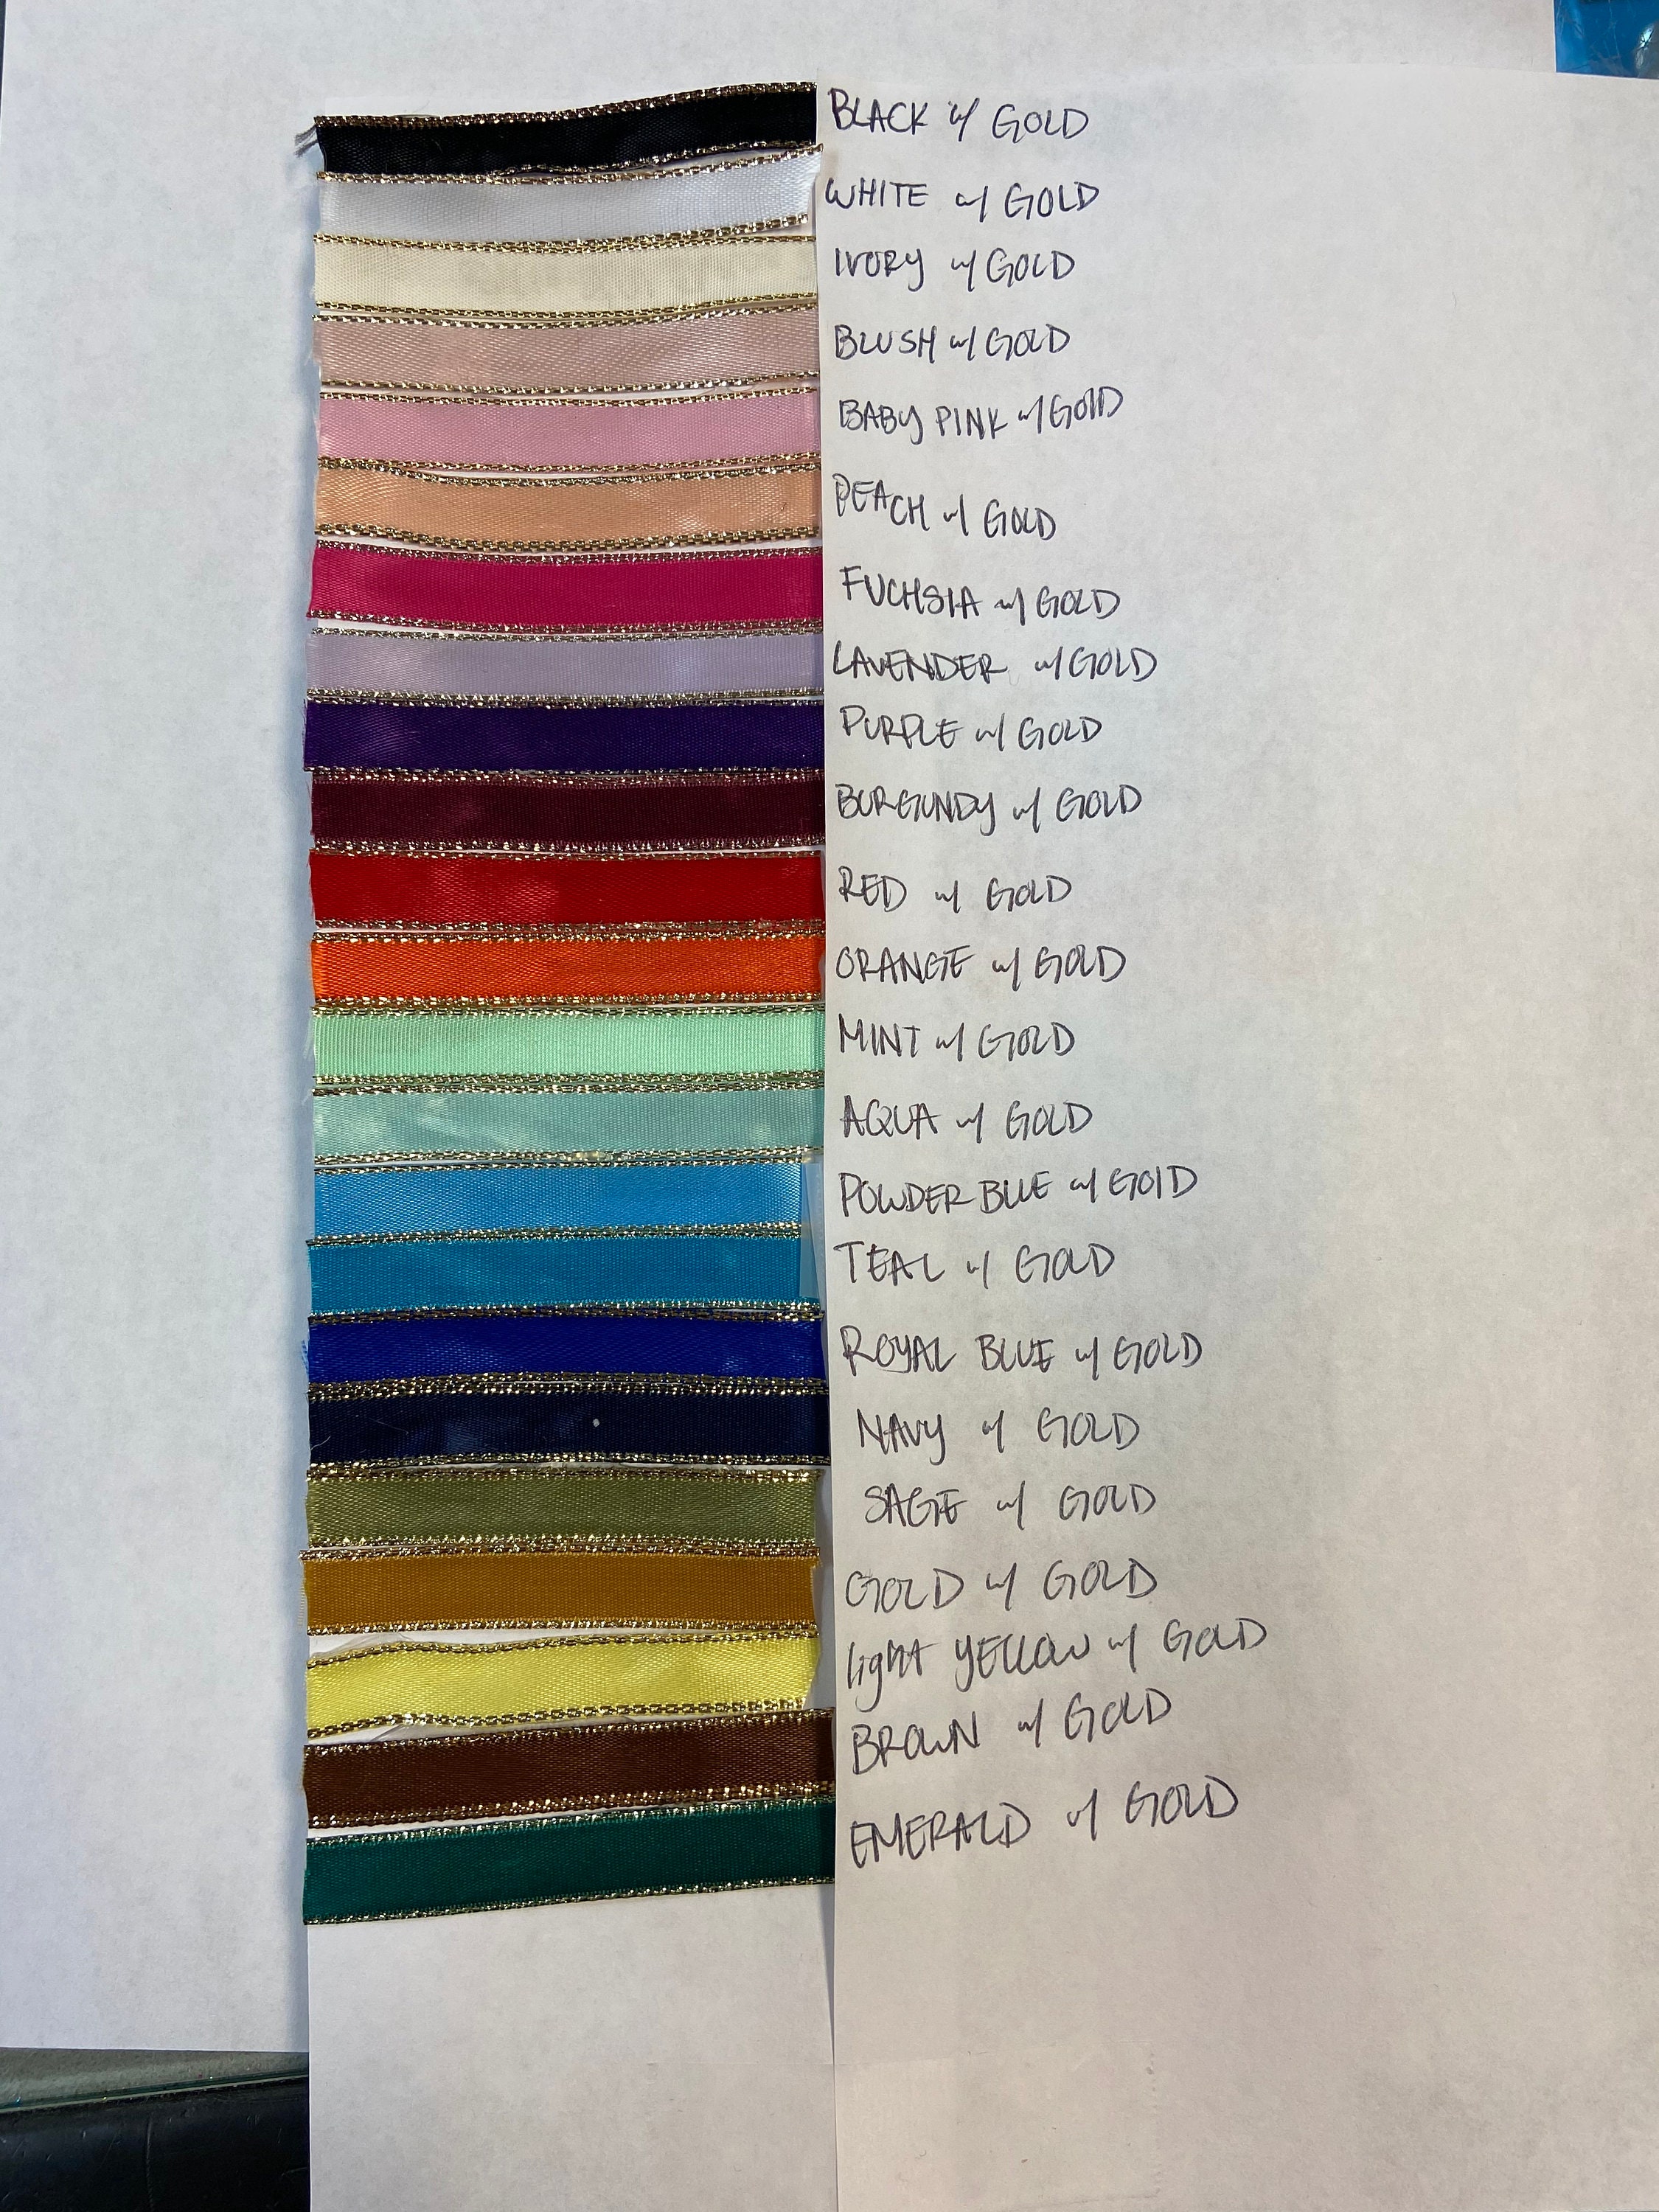 BLACK w/ GOLD
WHITE w/ GOLD
IVORY w/ GOLD
BLUSH w/ GOLD
BABY PINK w/ GOLD
PEACH w/ GOLD
FUCHSIA w/ GOLD
LAVENDER w/ GOLD
PURPLE w/ GOLD
BURGUNDY w/ GOLD
RED w/ GOLD
ORANGE w/ GOLD
MINT w/ GOLD
AQUA w/ GOLD
POWDER BLUE w/ GOLD
TEAL w/ GOLD
ROYAL BLUE w/ GOLD
NAVY w/ GOLD
SAGE w/ GOLD
GOLD w/ GOLD
light YELLOW w/ GOLD
BROWN w/ GOLD
EMERALD w/ GOLD